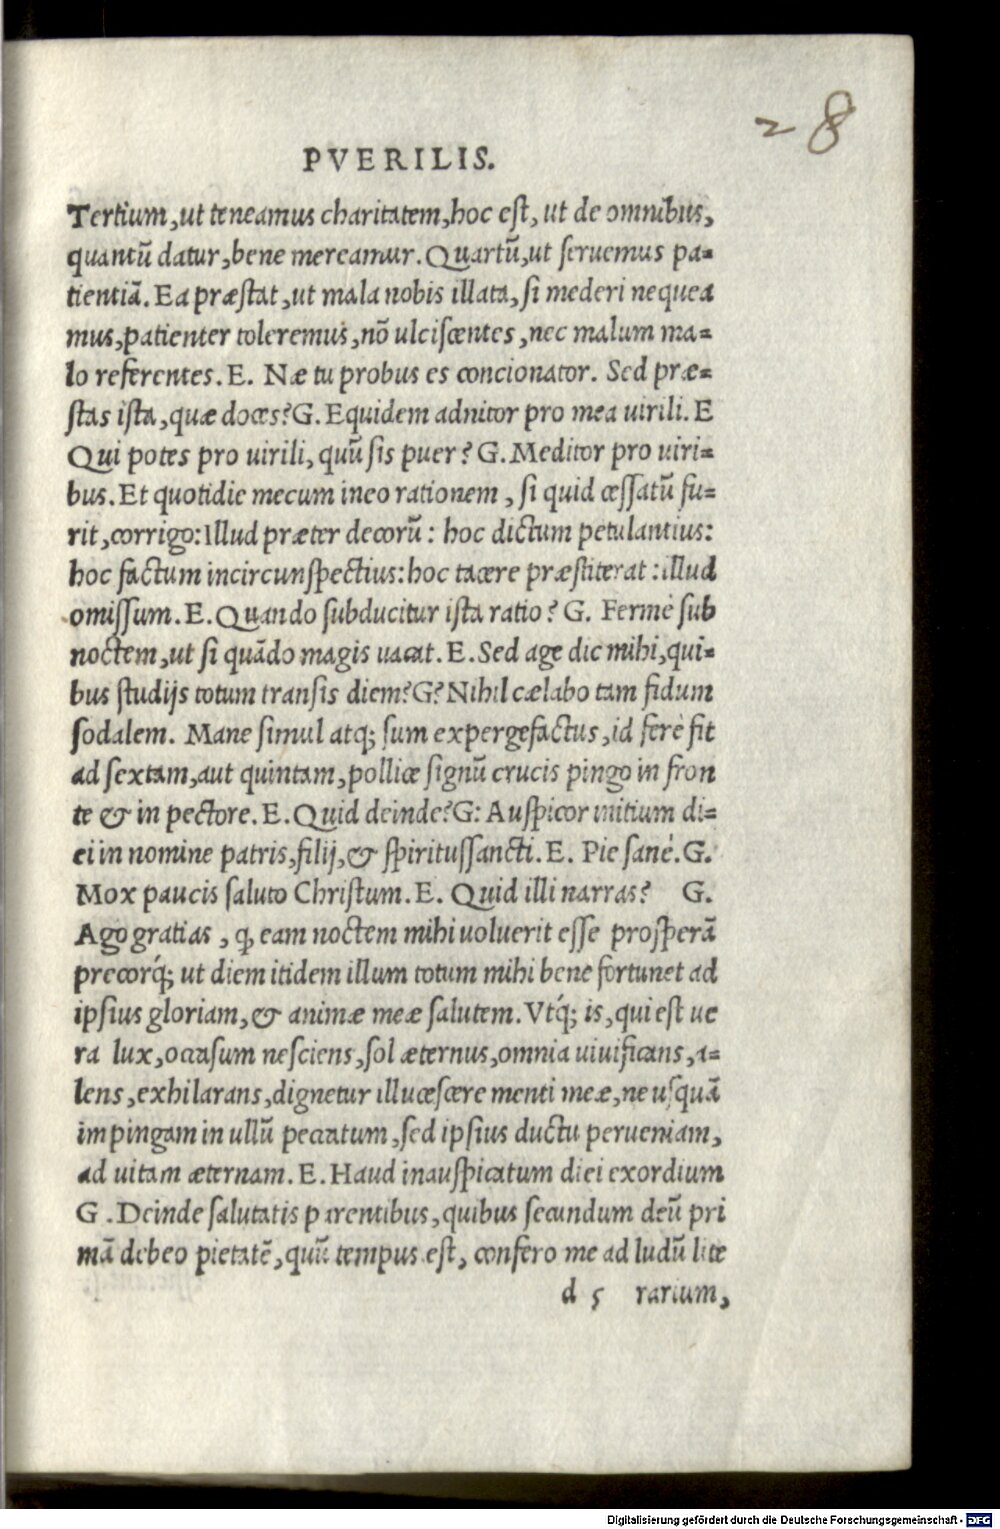 28
PVERILIS.
Tertium, ut teneamus charitatem, hoc est, ut de omnibus,
quantū datur, bene mereamur. Quartū, ut seruemus pa-
tientiā. Ea præstat, ut mala nobis illata, si mederi nequea
mus, patienter toleremus, nō ulciscentes, nec malum ma-
lo referentes. E. Næ tu probus es concionator. Sed præ-
stas ista, quæ doces? G. Equidem adnitor pro mea uirili. E
Qui potes pro uirili, quū sis puer? G. Meditor pro uiri-
bus. Et quotidie mecum ineo rationem, si quid cessatū fu-
rit, corrigo: Illud præter decorū: hoc dictum petulantius:
hoc factum incircunspectius: hoc tacere præstiterat: illud
omissum. E. Quando subducitur ista ratio? G. Fermè sub
noctem, ut si quādo magis uacat. E. Sed age dic mihi, qui-
bus studijs totum transis diem? G? Nihil cælabo tam fidum
sodalem. Mane simul atq; sum expergefactus, id ferè fit
ad sextam, aut quintam, pollice signū crucis pingo in fron
te & in pectore. E. Quid deinde? G: Auspicor initium di-
ei in nomine patris, filij, & spiritussancti. E. Pie sanè. G.
Mox paucis saluto Christum. E. Quid illi narras? G.
Ago gratias, ꝙ eam noctem mihi uoluerit esse prosperā
precorq́; ut diem itidem illum totum mihi bene fortunet ad
ipsius gloriam, & animæ meæ salutem. Vtq́; is, qui est ue
ra lux, occasum nesciens, sol æternus, omnia uiuificans, a-
lens, exhilarans, dignetur illucescere menti meæ, ne usquā
impingam in ullū peccatum, sed ipsius ductu perueniam,
ad uitam æternam. E. Haud inauspicatum diei exordium
G. Deinde salutatis parentibus, quibus secundum deū pri
mā debeo pietatē, quū tempus est, confero me ad ludū lite
d 5 rarium,
Digitalisierung gefördert durch die Deutsche Forschungsgemeinschaft - DFG